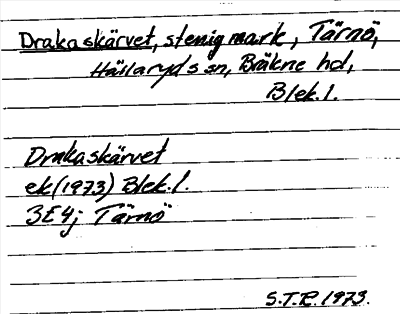 Drakaskärvet, stenig mark, Tärnö,
Hällaryds sn, Bräkne hd,
Blek. l.
Drakaskärvet
ek (1973) Blek. l.
3E4j Tärnö
S.T.R. 1973.